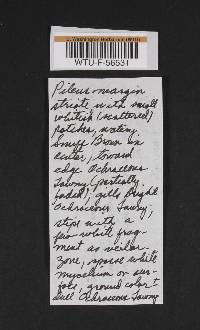 U. Washington Herbarium (WTU)
WTU-F-56531
Pileus margin
striate with small
whitish (scattered)
patches, watery
Snuff Brown in
center, toward
edge Ochraceous
Tawny (partially
faded), gills Bright
Ochraceous Tawny;
stipe with a
few white frag-
ment as veilar
zone, sparse white
mycelium on sur-
face, ground color ±
dull Ochraceous Tawny